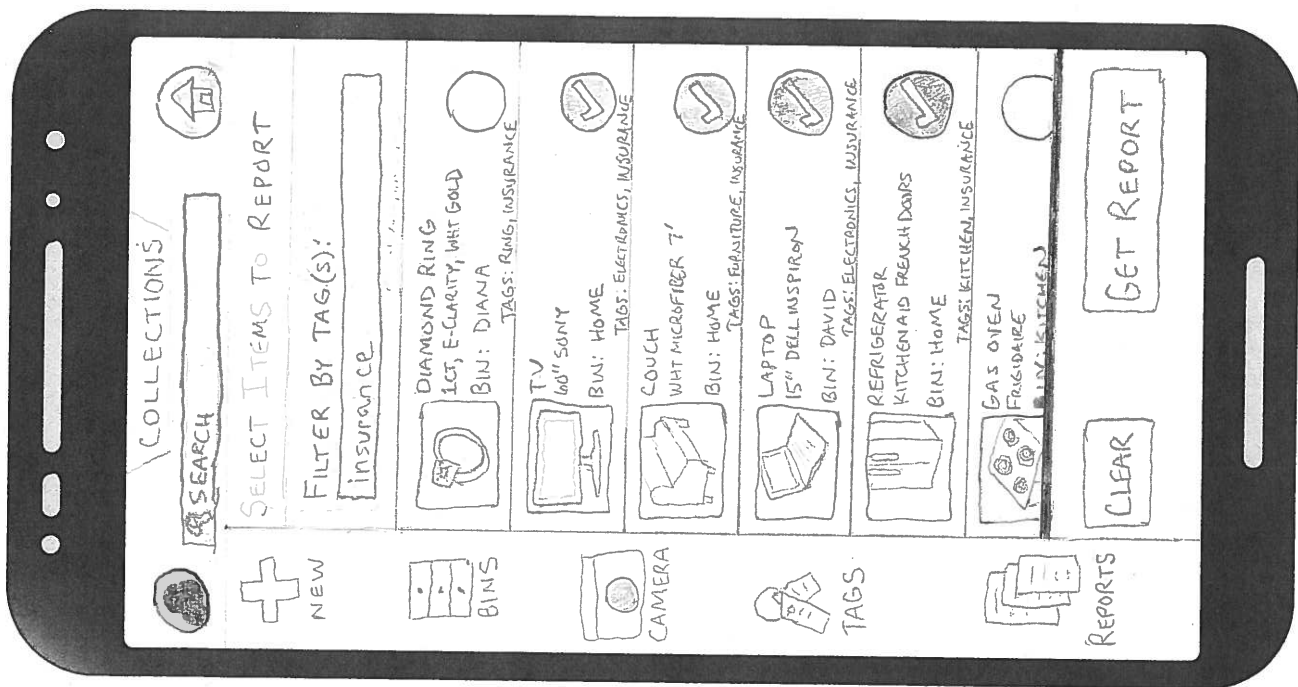 COLLECTIONS
SEARCH
SELECT ITEMS TO REPORT
FILTER BY TAG(S):
insurance
NEW
BINS
CAMERA
TAGS
REPORTS
DIAMOND RING
1CT, E-CLARITY, WHT GOLD
BIN: DIANA
TAGS: RING, INSURANCE
TV
60" SONY
BIN: HOME
TAGS: ELECTRONICS, INSURANCE
COUCH
WHT MICROFIBER 7'
BIN: HOME
TAGS: FURNITURE, INSURANCE
LAPTOP
15" DELL INSPIRON
BIN: DAVID
TAGS: ELECTRONICS, INSURANCE
REFRIGERATOR
KITCHENAID FRENCH DOORS
BIN: HOME
TAGS: KITCHEN, INSURANCE
GAS OVEN
FRIGIDAIRE
BIN: KITCHEN
CLEAR
GET REPORT